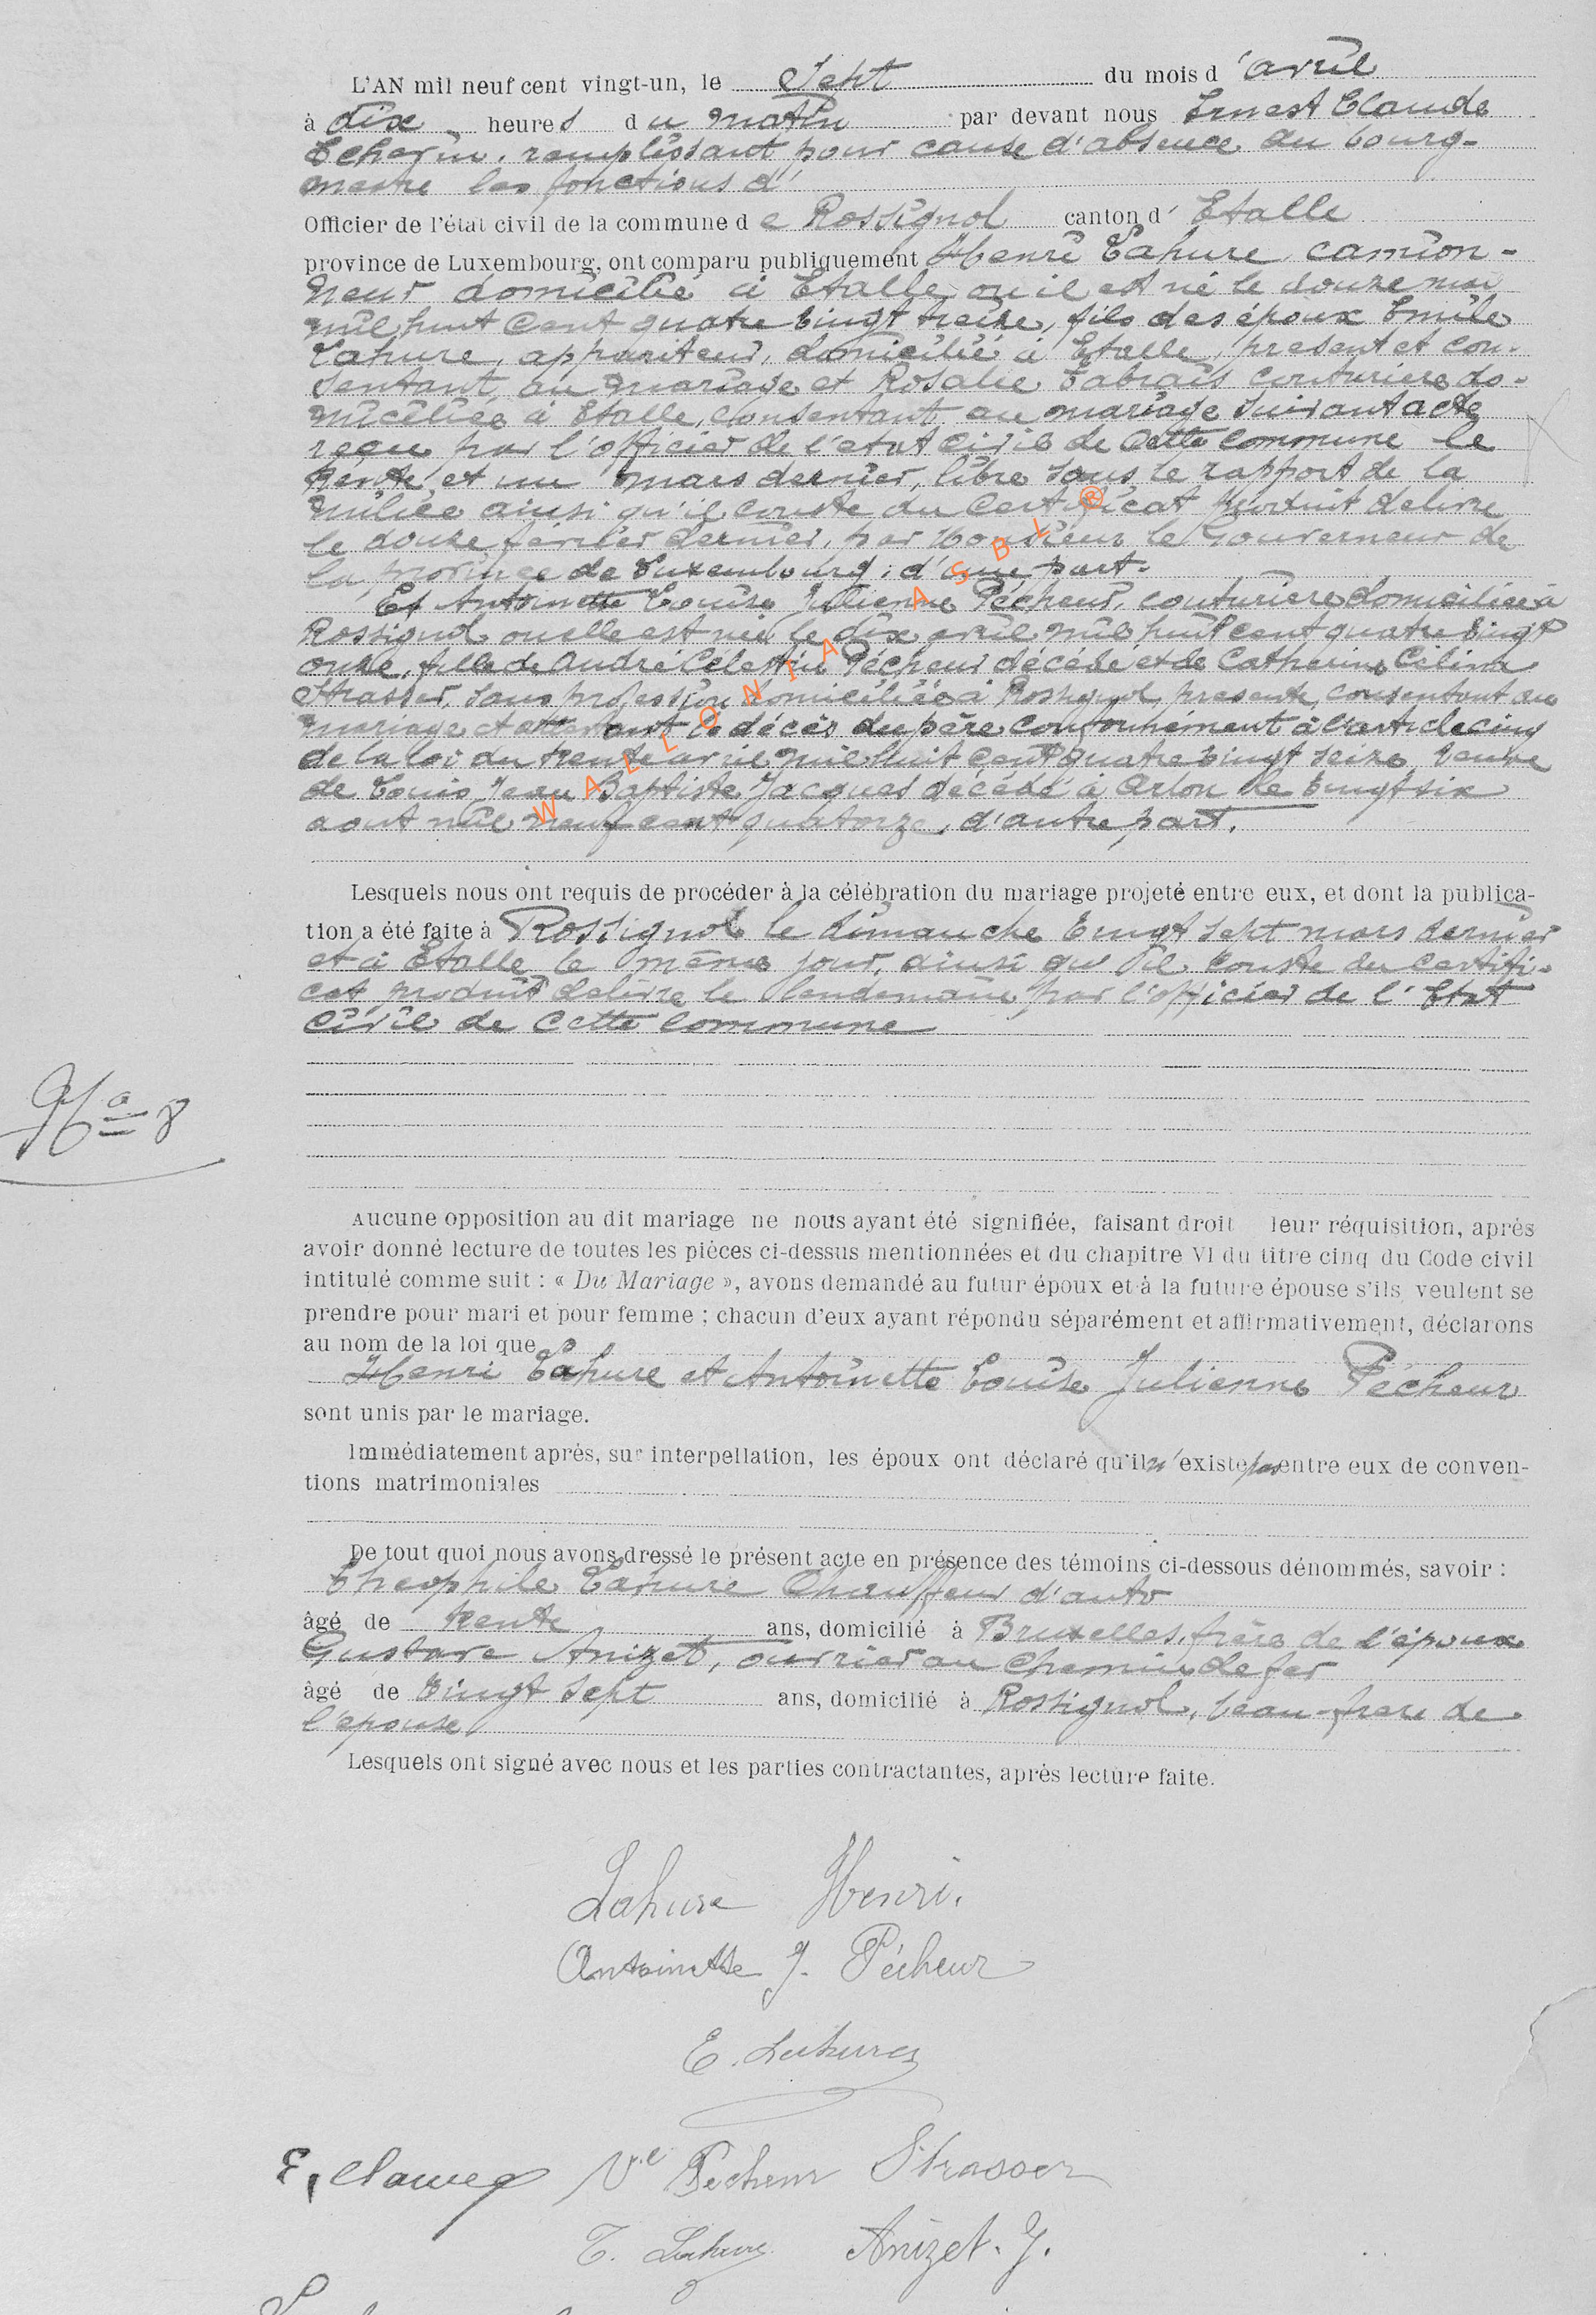 L'AN mil neuf cent vingt-un, le Sept du mois d'avril
à dix heures du matin par devant nous Ernest Claude
Echevin, remplissant pour cause d'absence du bourg-
mestre les fonctions d'
Officier de l'état civil de la commune de Rossignol canton d'Etalle
province de Luxembourg, ont comparu publiquement Henri Lahure, camion-
neur domicilié à Etalle ou il est né le douze mai
mil huit cent quatre vingt treize, fils des époux Emile
Lahure, appariteur, domicilié à Etalle, present et con-
sentant au mariage et Rosalie couturière do-
miciliée à Etalle, consentant au mariage suivant acte
reçu par l'officier de l'etat civil de cette commune le
trente et un mars dernier, libre sous le rapport de la
milice ainsi qu'il conste du certificat produit delivré
le douze février dernier, par Monsieur le Gouverneur de
la province de Luxembourg; d'une part.
Et Antoinette Louise Julienne Pécheur, couturière domiciliée à
Rossignol ou elle est née le dix avril mil huit cent quatre vingt
onze, fille de André Célestin Pécheur décédé et de Catherine Célina
Strasser, sans profession domiciliée à Rossignol, presente, consentant au
mariage et attestant le décès du père conformément à l'article cinq
de la loi du trente avril mil huit cent quatre vingt seize, veuve
de Louis Jean Baptiste Jacques décédé à Arlon le vingt six
aout mil neuf cent quatorze, d'autre part.
Lesquels nous ont requis de procéder à la célébration du mariage projeté entre eux, et dont la publica-
tion a été faite à Rossignol le dimanche vingt sept mars dernier
et à Etalle le même jour, ainsi qu'il conste du certifi-
cat produit delivré le lendemain par l'officier de l'Etat
Civil de cette commune
No 8
Aucune opposition au dit mariage ne nous ayant été signifiée, faisant droit leur réquisition, après
avoir donné lecture de toutes les pièces ci-dessus mentionnées et du chapitre VI du titre cinq du Code civil
intitulé comme suit : « Du Mariage », avons demandé au futur époux et à la future épouse s'ils veulent se
prendre pour mari et pour femme ; chacun d'eux ayant répondu séparément et affirmativement, déclarons
au nom de la loi que
Henri Lahure et Antoinette Louise Julienne Pécheur
sont unis par le mariage.
Immédiatement après, sur interpellation, les époux ont déclaré qu'il n'existe pas entre eux de conven-
tions matrimoniales
De tout quoi nous avons dressé le présent acte en présence des témoins ci-dessous dénommés, savoir :
Théophile Lahure Chauffeur d'auto
âgé de trente ans, domicilié à Bruxelles, frère de l'époux
Gustave Anizet, ouvrier au chemin de fer
âgé de vingt sept ans, domicilié à Rossignol, beau-frere de
l'épouse
Lesquels ont signé avec nous et les parties contractantes, après lecture faite.
Lahure Henri.
Antoinette J. Pécheur
E. Lahure
E. Claude Ve Pécheur Strasser
T. Lahure Anizet. G.
WALLONIA ASBL ®